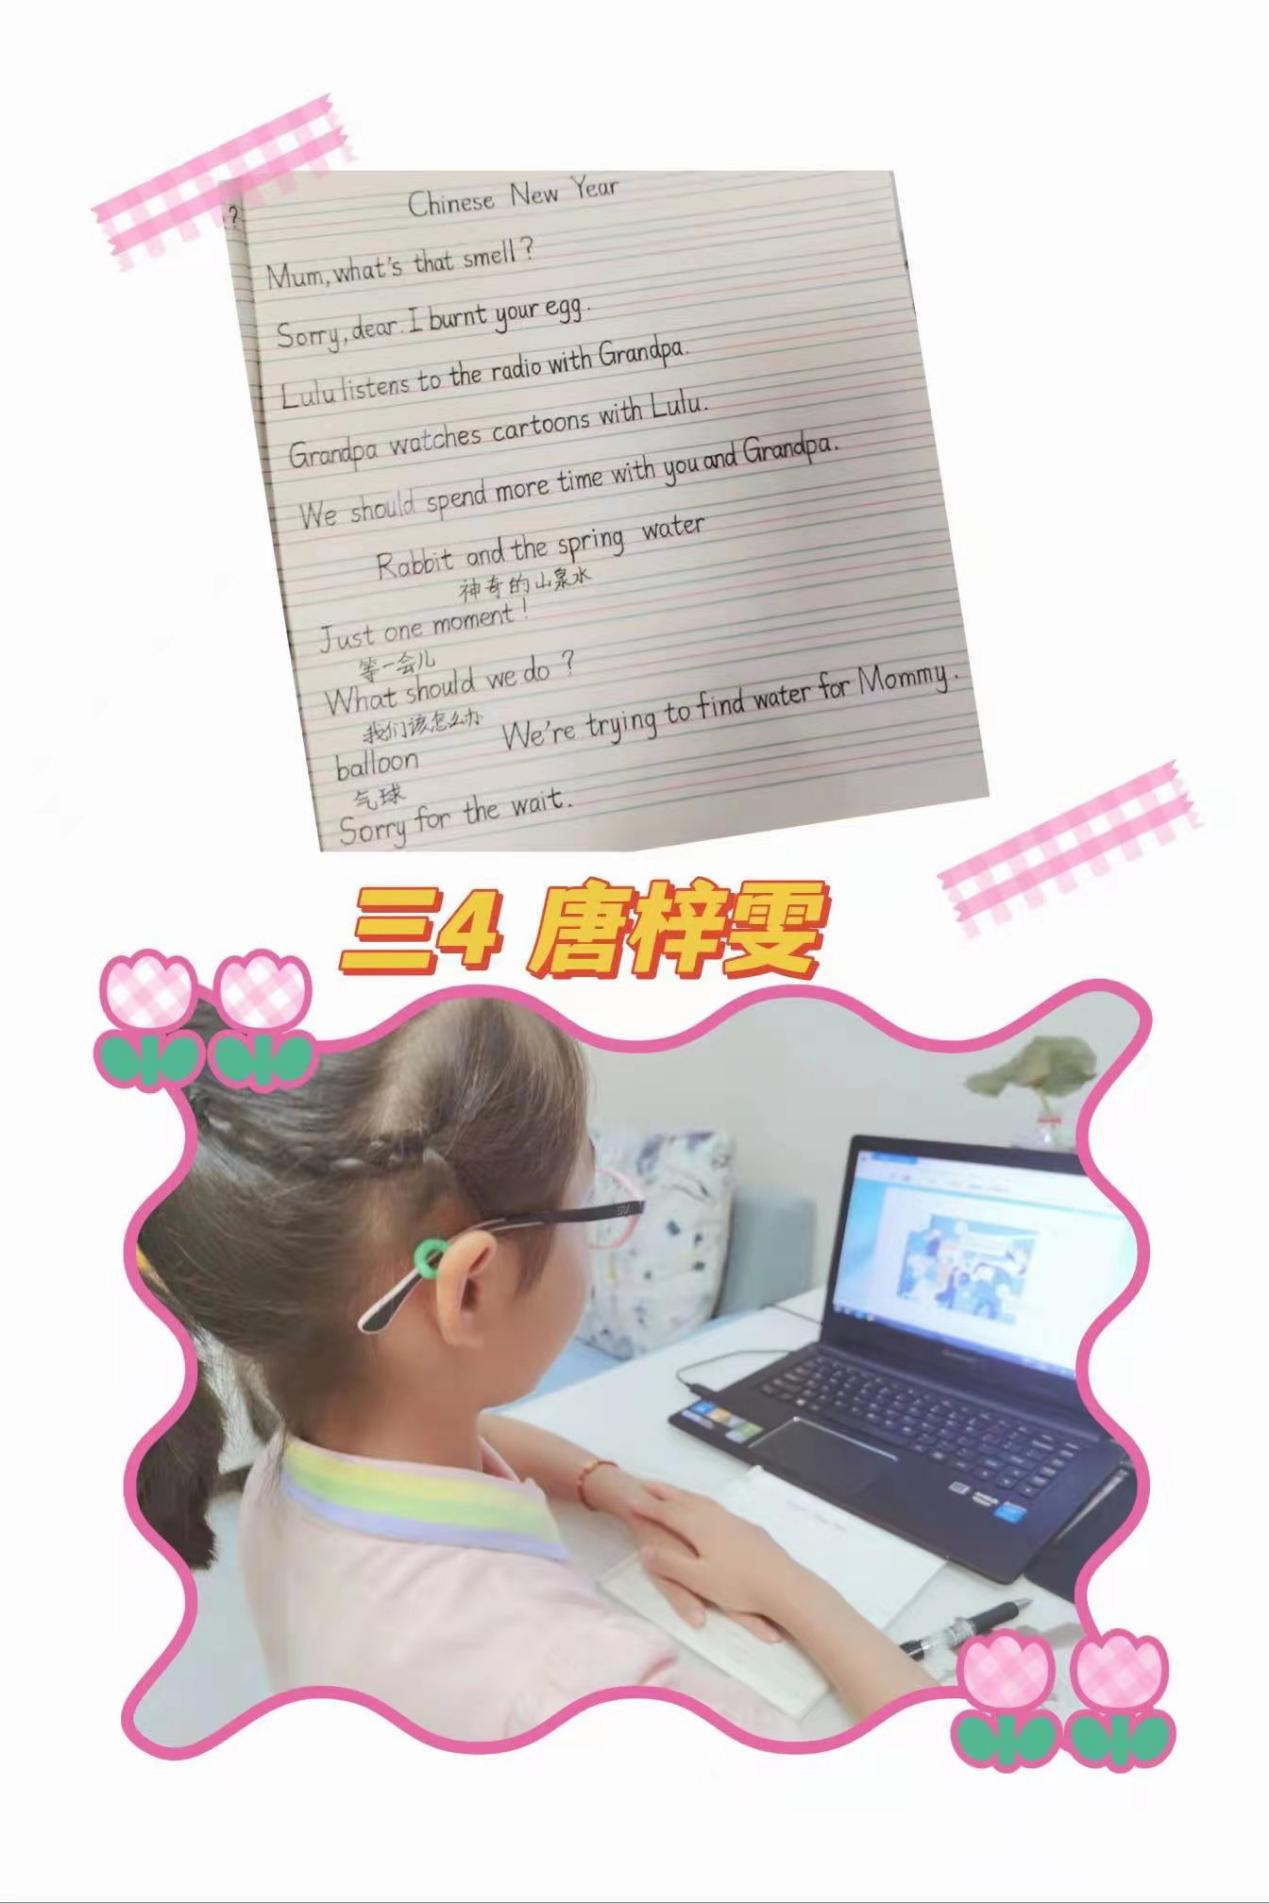 ?
Chinese New Year
Mum, what's that smell?
Sorry, dear. I burnt your egg.
Lulu listens to the radio with Grandpa.
Grandpa watches cartoons with Lulu.
We should spend more time with you and Grandpa.
Rabbit and the spring water
神奇的山泉水
Just one moment!
等一会儿
What should we do?
我们该怎么办
We're trying to find water for Mommy.
balloon
气球
Sorry for the wait.
三4 唐梓雯